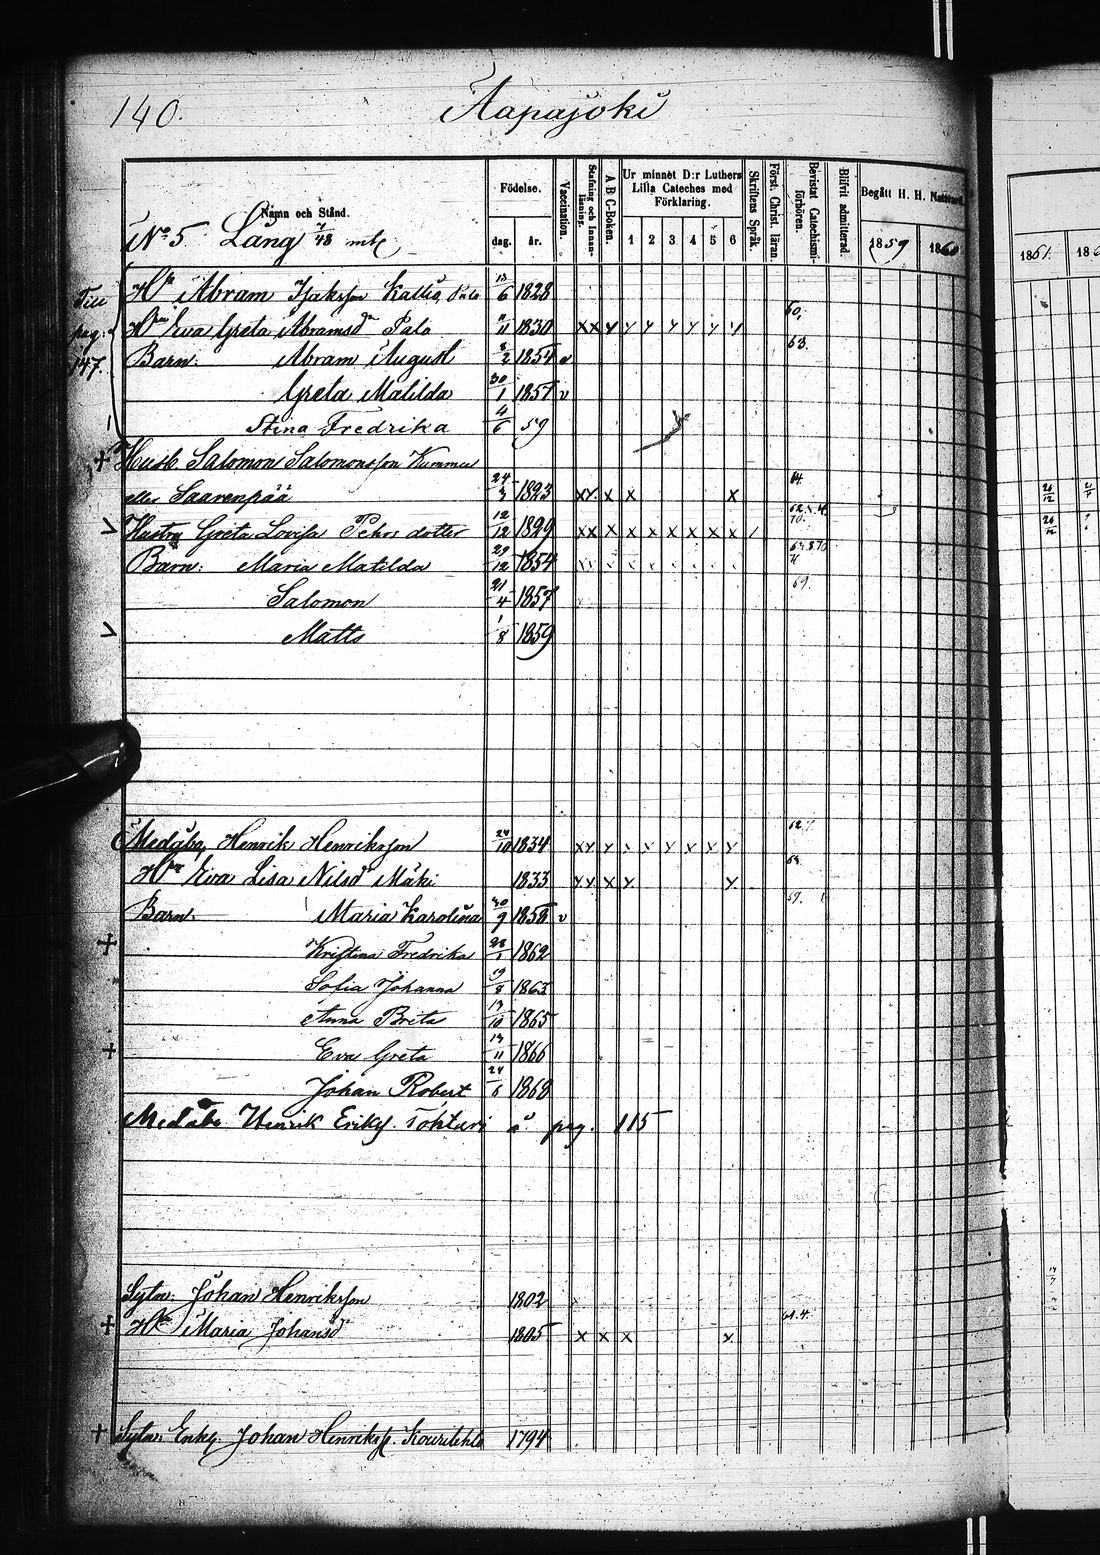 140.
Aapajoki
Namn och Stånd.
Födelse.
dag.
år.
Vaccination.
Stafning och Innanläsning.
A B C-Boken.
Ur minnet D:r Luthers Lilla Cateches med Förklaring.
1 2 3 4 5 6
Skriftens Språk.
Först. Christ. läran.
Bevistat Catechismiförhören.
Blifvit admitterad.
Begått H. H. Nattvard.
1859 1860
1861
No 5 Lång 7/48 mtl
Till pag. 147.
Abram Isaksson Kallio, Palo 13/6 1828
Eva Greta Abramsd Palo 11/11 1830 x x y y y y y y y 60.
Barn: Abram August 8/2 1854 v 63.
Greta Matilda 30/1 1857 v
Stina Fredrika 4/6 59
+ Husb. Salomon Salomonsson
eller Saarenpää 24/3 1823 x x x x x 64
Hustru Greta Lovisa Pehrsdotter 12/12 1829 x x x x x x x x x 70.
Barn: Maria Matilda 29/12 1854
Salomon 21/4 1857 69.
Matts 1/8 1859
Henrik Henriksson 24/10 1834 x y y x y y y y y 62
Eva Lisa Nilsd Mäki 1833 y y x y y
Barn: Maria Karolina 30/9 1858 v 69.
+ Kristina Fredrika 28/1 1862
Sofia Johanna 19/8 1863
Anna Brita 13/10 1865
+ Eva Greta 13/11 1866
Johan Robert 24/6 1868
Henrik Eriks. Tohturi å pag. 115
Sytn: Johan Henriksson 1802
+ Maria Johansd 1805 x x x y 61.4.
+ Sytn: Enkl. Johan Henrikss. 1794